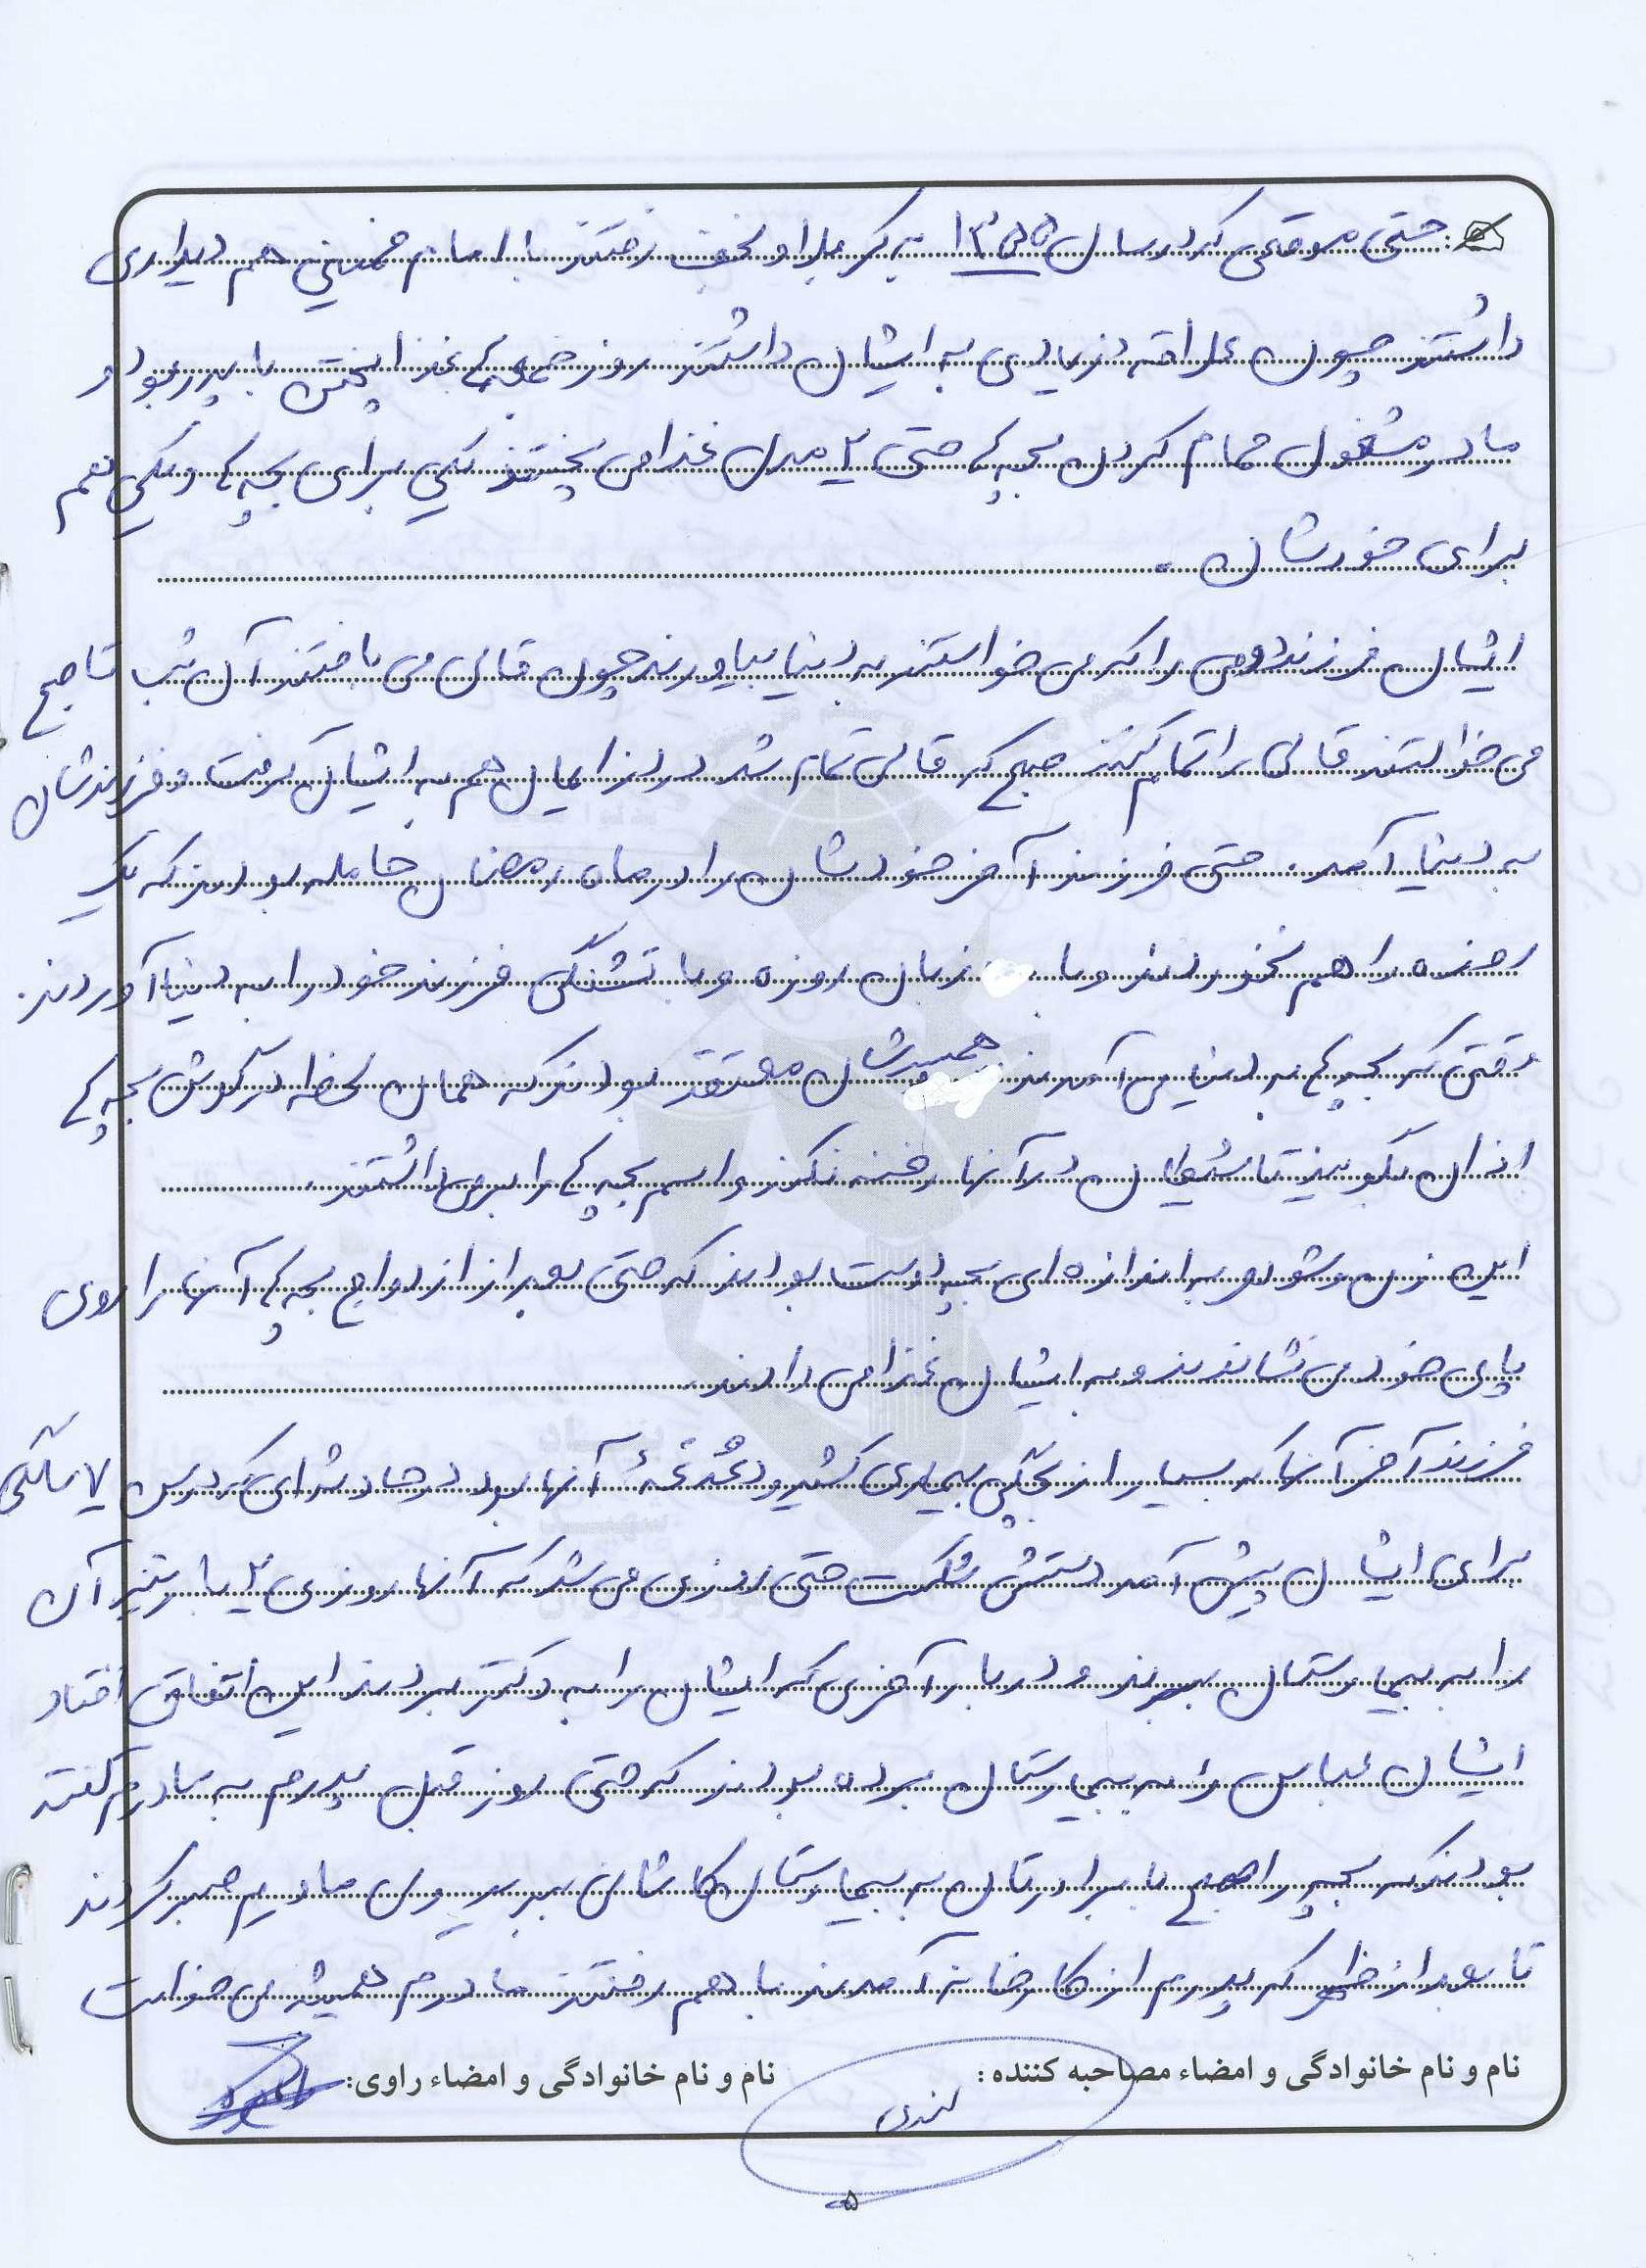 حتی موقعی که در سال ۱۳۵۵ به کربلا و نجف رفتند با امام خمینی هم دیداری
داشتند چون علاقه زیادی به ایشان داشتند روز جمعه ها غذا پختن با پدر بود و
مادر مشغول حمام کردن بچه ها حتی ۲ مدل غذا می پختند یکی برای بچه ها و یکی هم
برای خودشان.
ایشان فرزند دومی را که می خواستند به دنیا بیاورند چون قالی می بافتند آن شب تا صبح
می خواستند قالی را تمام کنند صبح که قالی تمام شد درد زایمان هم به ایشان گرفت و فرزندشان
به دنیا آمد. حتی فرزند آخر خودشان را در ماه رمضان حامله بودند که یک
روزه را هم نخوردند و با زبان روزه و با تشنگی فرزند خود را به دنیا آوردند.
وقتی که بچه ها به دنیا می آمدند همسرشان معتقد بودند که همان لحظه در گوش بچه ها
اذان بگویند تا شیطان در آنها رخنه نکند و اسم بچه ها را بر می داشتند.
این زن و شوهر به اندازه ای بچه دوست بودند که حتی بعد از ازدواج بچه ها آنها را روی
پای خود می نشاندند و به ایشان غذا می دادند.
فرزند آخر آنها که بسیار از بچگی بیماری کشید و دغدغهٔ آنها بود در حادثه ای که در سن ۷ سالگی
برای ایشان پیش آمد دستش شکست حتی روزی می شد که آنها روزی ۲ بار نیز آن
را به بیمارستان ببرند و در بار آخری که ایشان را به دکتر بردند این اتفاق افتاد
ایشان عباس را به بیمارستان برده بودند که حتی روز قبل پدرم به مادرم گفته
بودند که بچه را صبح با برادرتان به بیمارستان کاشانی ببرید ولی مادرم صبر کردند
تا بعد از ظهر که پدرم از کارخانه آمدند با هم رفتند مادرم همیشه می خواست
نام و نام خانوادگی و امضاء مصاحبه کننده:
نام و نام خانوادگی و امضاء راوی:
۵